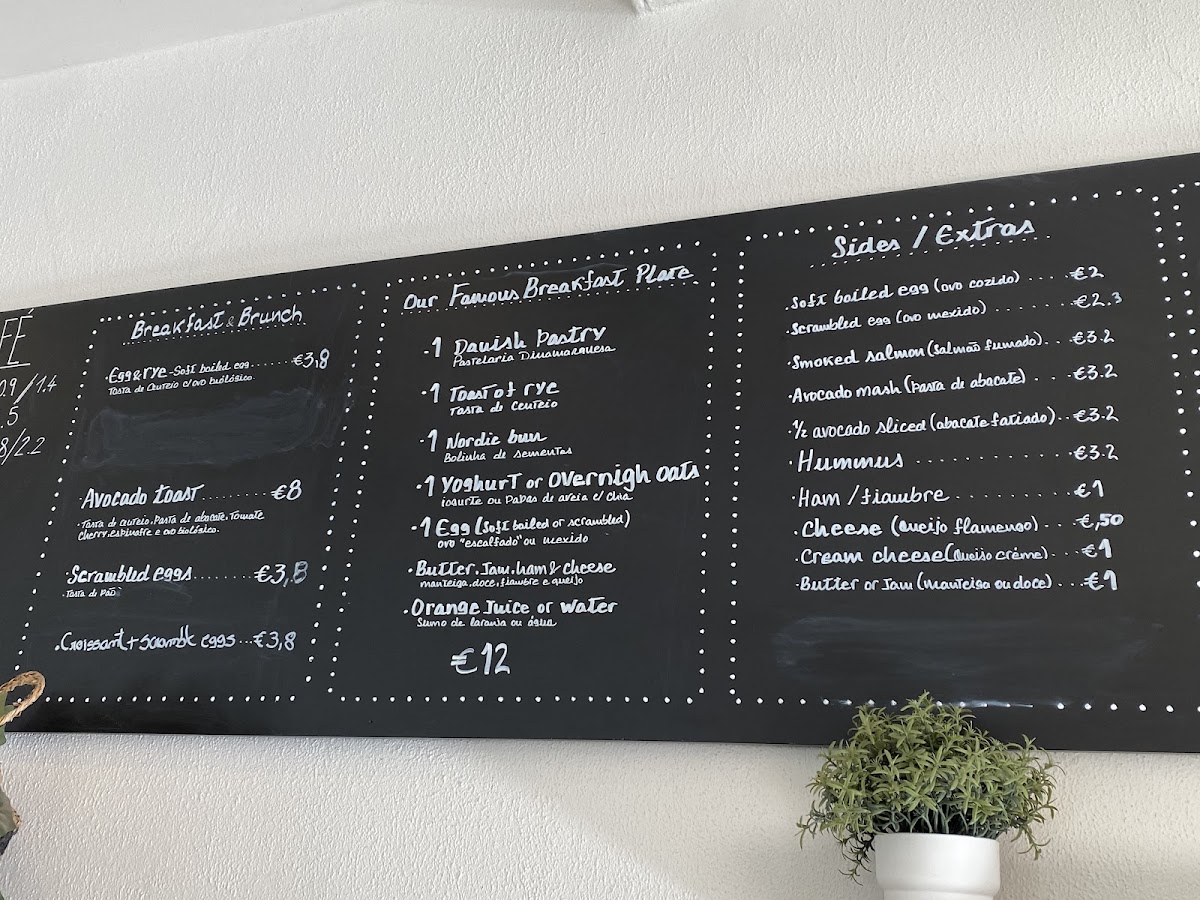 FÉ
0.9/1.4
.5
8/2.2
Breakfast & Brunch
·Egg & rye - Soft boiled egg.......€3,8
Tosta de Centeio c/ ovo biológico
·Avocado toast.........€8
·Tosta de centeio, Pasta de abacate, Tomate
cherry, espinafre e ovo biológico.
·Scrambled eggs........€3,8
·Tosta de pão
·Croissant + scramble eggs...€3,8
Our Famous Breakfast Plate
·1 Danish Pastry
Pastelaria Dinamarquesa
·1 Toast of rye
Tosta de Centeio
·1 Nordic bun
Bolinha de sementes
·1 Yoghurt or Overnigh oats
iogurte ou Papas de aveia c/ chia
·1 Egg (Soft boiled or scrambled)
ovo "escalfado" ou mexido
·Butter, Jam, ham & cheese
manteiga, doce, fiambre e queijo
·Orange Juice or water
Sumo de laranja ou água
€12
Sides / Extras
·Soft boiled egg (ovo cozido) ....€2
·Scrambled egg (ovo mexido) ........€2.3
·Smoked salmon (Salmão fumado)...€3.2
·Avocado mash (pasta de abacate) ...€3.2
·½ avocado sliced (abacate fatiado)..€3.2
·Hummus ............€3.2
·Ham / fiambre..........€1
·Cheese (queijo flamengo)...€,50
·Cream cheese (Queijo créme)...€1
·Butter or Jam (manteiga ou doce)...€1